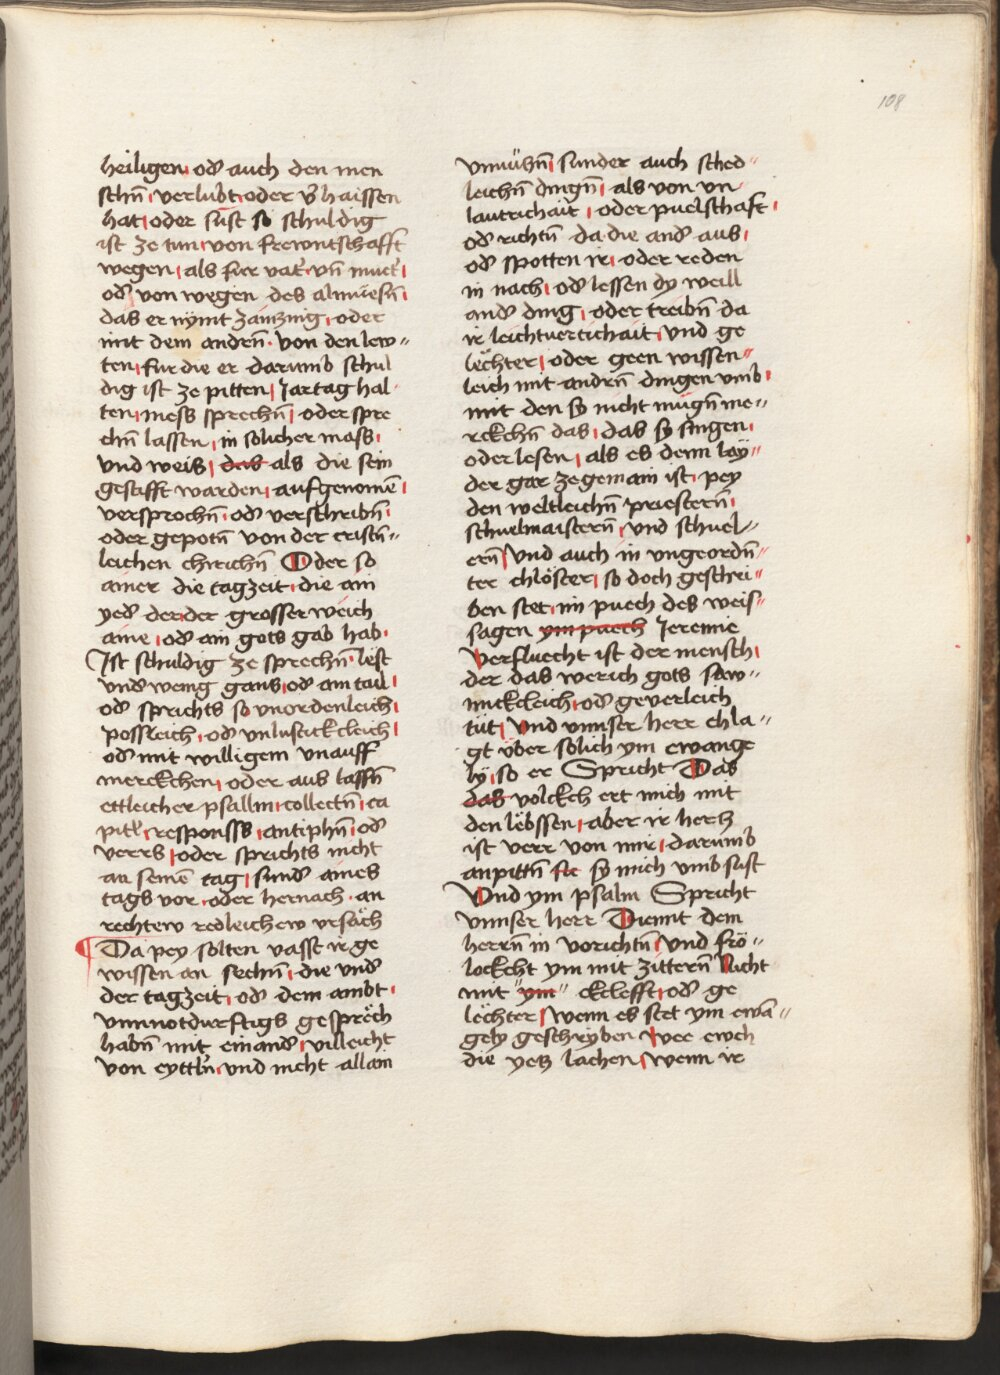 108
heiligen od̕ auch den men
schn̄ verlubt oder v̕haissen
hat oder sust so schuldig
ist ze tun von frewntschafft
wegen als fur vat̕ vn̄ muet̕
od̕ von wegen des almuesn̄
das er nymt zainzing oder
mit dem andrn̄ von den lew〃
ten fur die er darumb schul
dig ist ze pitten Jartag hal
ten mess sprechn̄ oder spre
chn̄ lassen in solicher mass
vnd weis das als die sein
gestifft warden aufgenomē
versprochn̄ od̕ verschribn̄
oder gepotn̄ von der cristn̄〃
leichen chirichn̄ Oder so
ainer die tagzeit die ain
yed̕ der der grosser weich
aine od̕ ain gots gab hab
Ist schuldig ze sprechn̄ lest
vnd wenig gans od̕ am tail
od̕ sprichts so vnordenleich
possleich od̕ vnlustickcleich
od̕ mit willigem vnauff
merckchen oder aus lassn̄
ettleicher psallm collectn̄ ca
pitl̕ responss antiphn̄ od̕
verss oder sprichts nicht
an seinē tag sund̕ aines
tags vor oder hernach an
rechtew redleichew vrsach
Da pey solten vasst ir ge
wissen an sechn̄ die vnd̕
der tagzeit od̕ dem ambt
vnnnotdurftigs gespräch
habn̄ mit einand̕ villeicht
von eyttln̄ vnd nicht allain
vnnüczn̄ sunder auch sched〃
leichn̄ dingn̄ als von vn
lautrichait oder puelschaft
od̕ richtn̄ da die and̕ aus
od̕ spotten ir oder reden
in nach od̕ lessen dy weill
and̕ ding oder treibn̄ da
ir leichtuertichait vnd ge
lёchter oder geen wissen〃
leich mit andrn̄ dingen vmb
mit den sy nicht mügn̄ me〃
rckchn̄ das das sy singen
oder lesen als es denn lay〃
der gar ze gemain ist pey
den weltleichn̄ priestern̄
schuelmaistern̄ vnd schuel〃
ern̄ vnd auch in vngeordn̄〃
ter chlöster so doch geschri〃
ben stet im puech des weis〃
sagen ym puech Jeremie
Verfluecht ist der mensch
der das werich gots saw〃
mickleich od̕ geuerleich
tüt vnd vnnser herr chla〃
gt über solich ym ewange
ly so er Spricht Das
das volckch ert mich mit
den lebssen aber ir hercz
ist verr von mir darumb
anpittn̄ sie sy mich vmb sust
Vnd ym psalm Spricht
vnnser herr Diennt dem
herrn̄ in vorichtn̄ vnd frö〃
lockcht ym mit zittern̄ Nicht
mit ym cklefft od̕ ge
lёchter wenn es stet ym ewā〃
gely geschryben wee ewch
die yecz lachen wenn ir